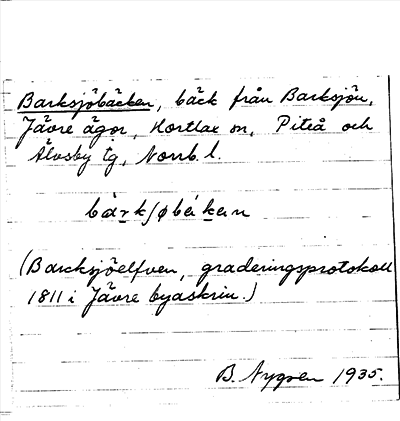 Barksjöbäcken, bäck från Barksjön,
Jävre ägor, Hortlax sn, Piteå och
Älvsby tg, Norrb. l.
bárkʃøbékan
(Barcksjöelfven, graderingsprotokoll
1811 i Jävre byaskrin.)
B. Nygren 1935.